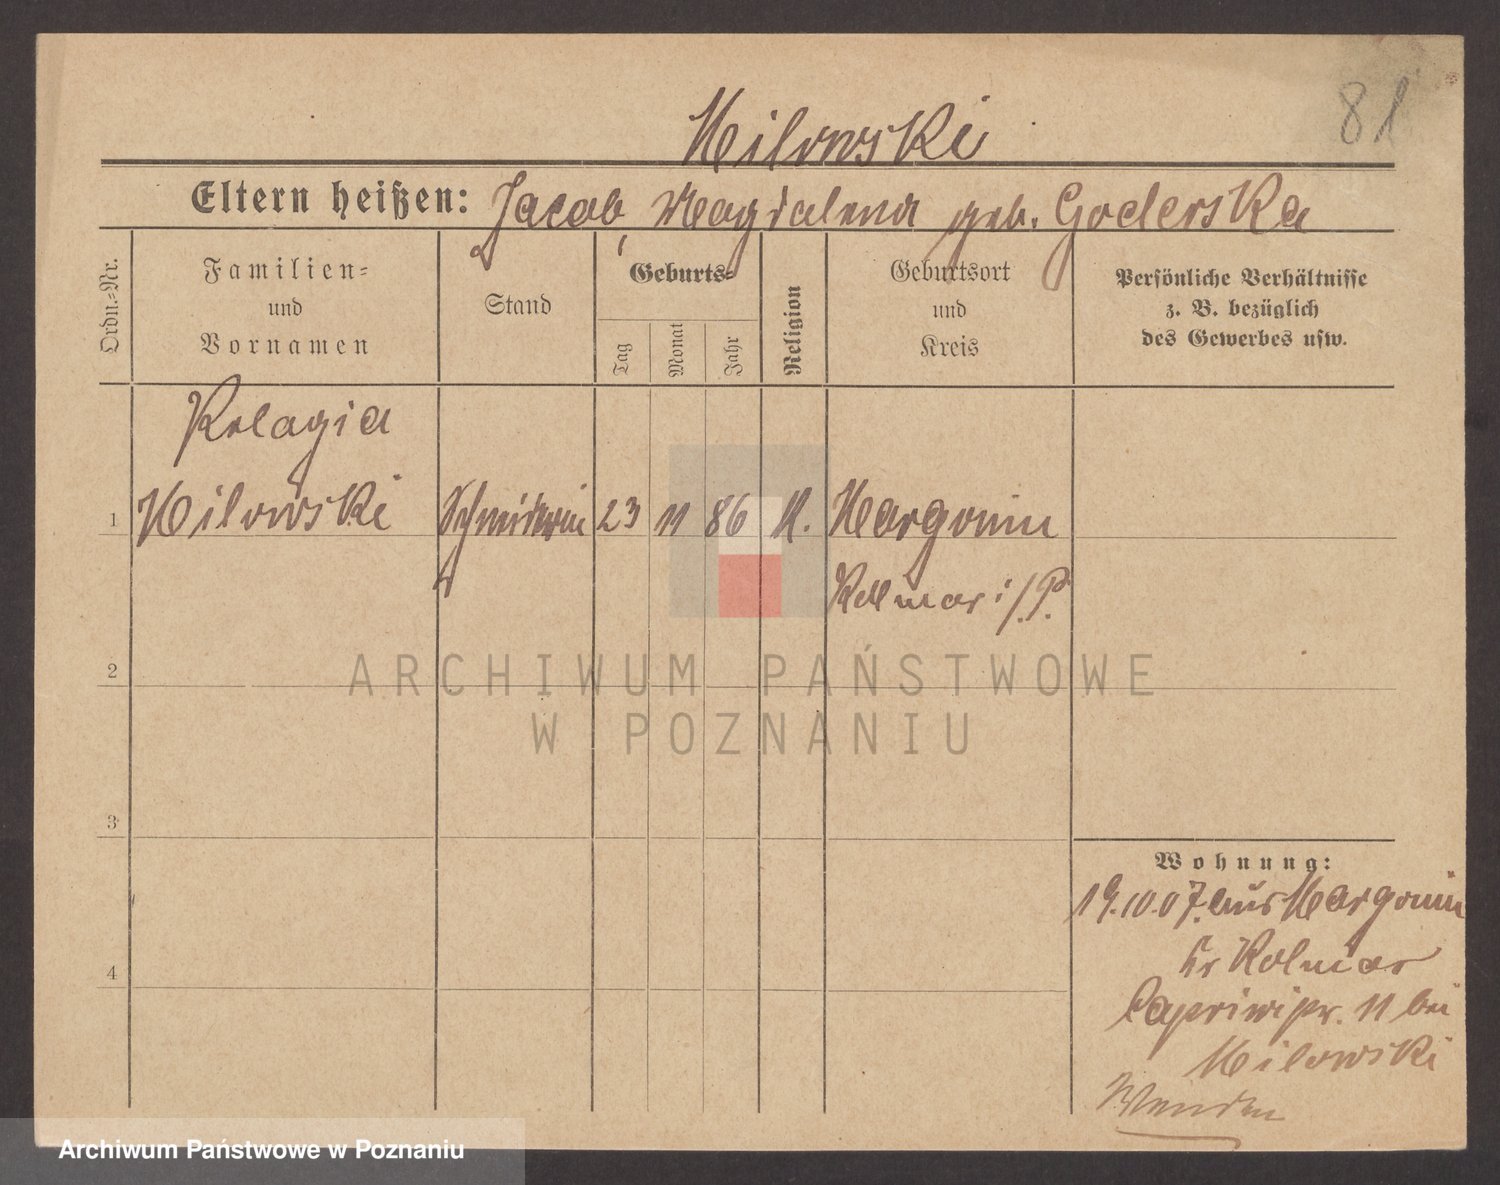 81
Milowski
Eltern heißen: Jacob, Magdalena geb. Goderska
Ordn.-Nr.
Familien-
und
Vornamen
Stand
Geburts-
Tag
Monat
Jahr
Religion
Geburtsort
und
Kreis
Persönliche Verhältnisse
z. B. bezüglich
des Gewerbes usw.
Pelagia
1 Milowski Schneiderin 23 11 86 K. Margonin
Kolmar i/P.
2
3
4
Wohnung:
19.10.07. aus Margonin
Kr Kolmar
Capriwistr. 11 bei
Milowski
ARCHIWUM PAŃSTWOWE
W POZNANIU
Archiwum Państwowe w Poznaniu